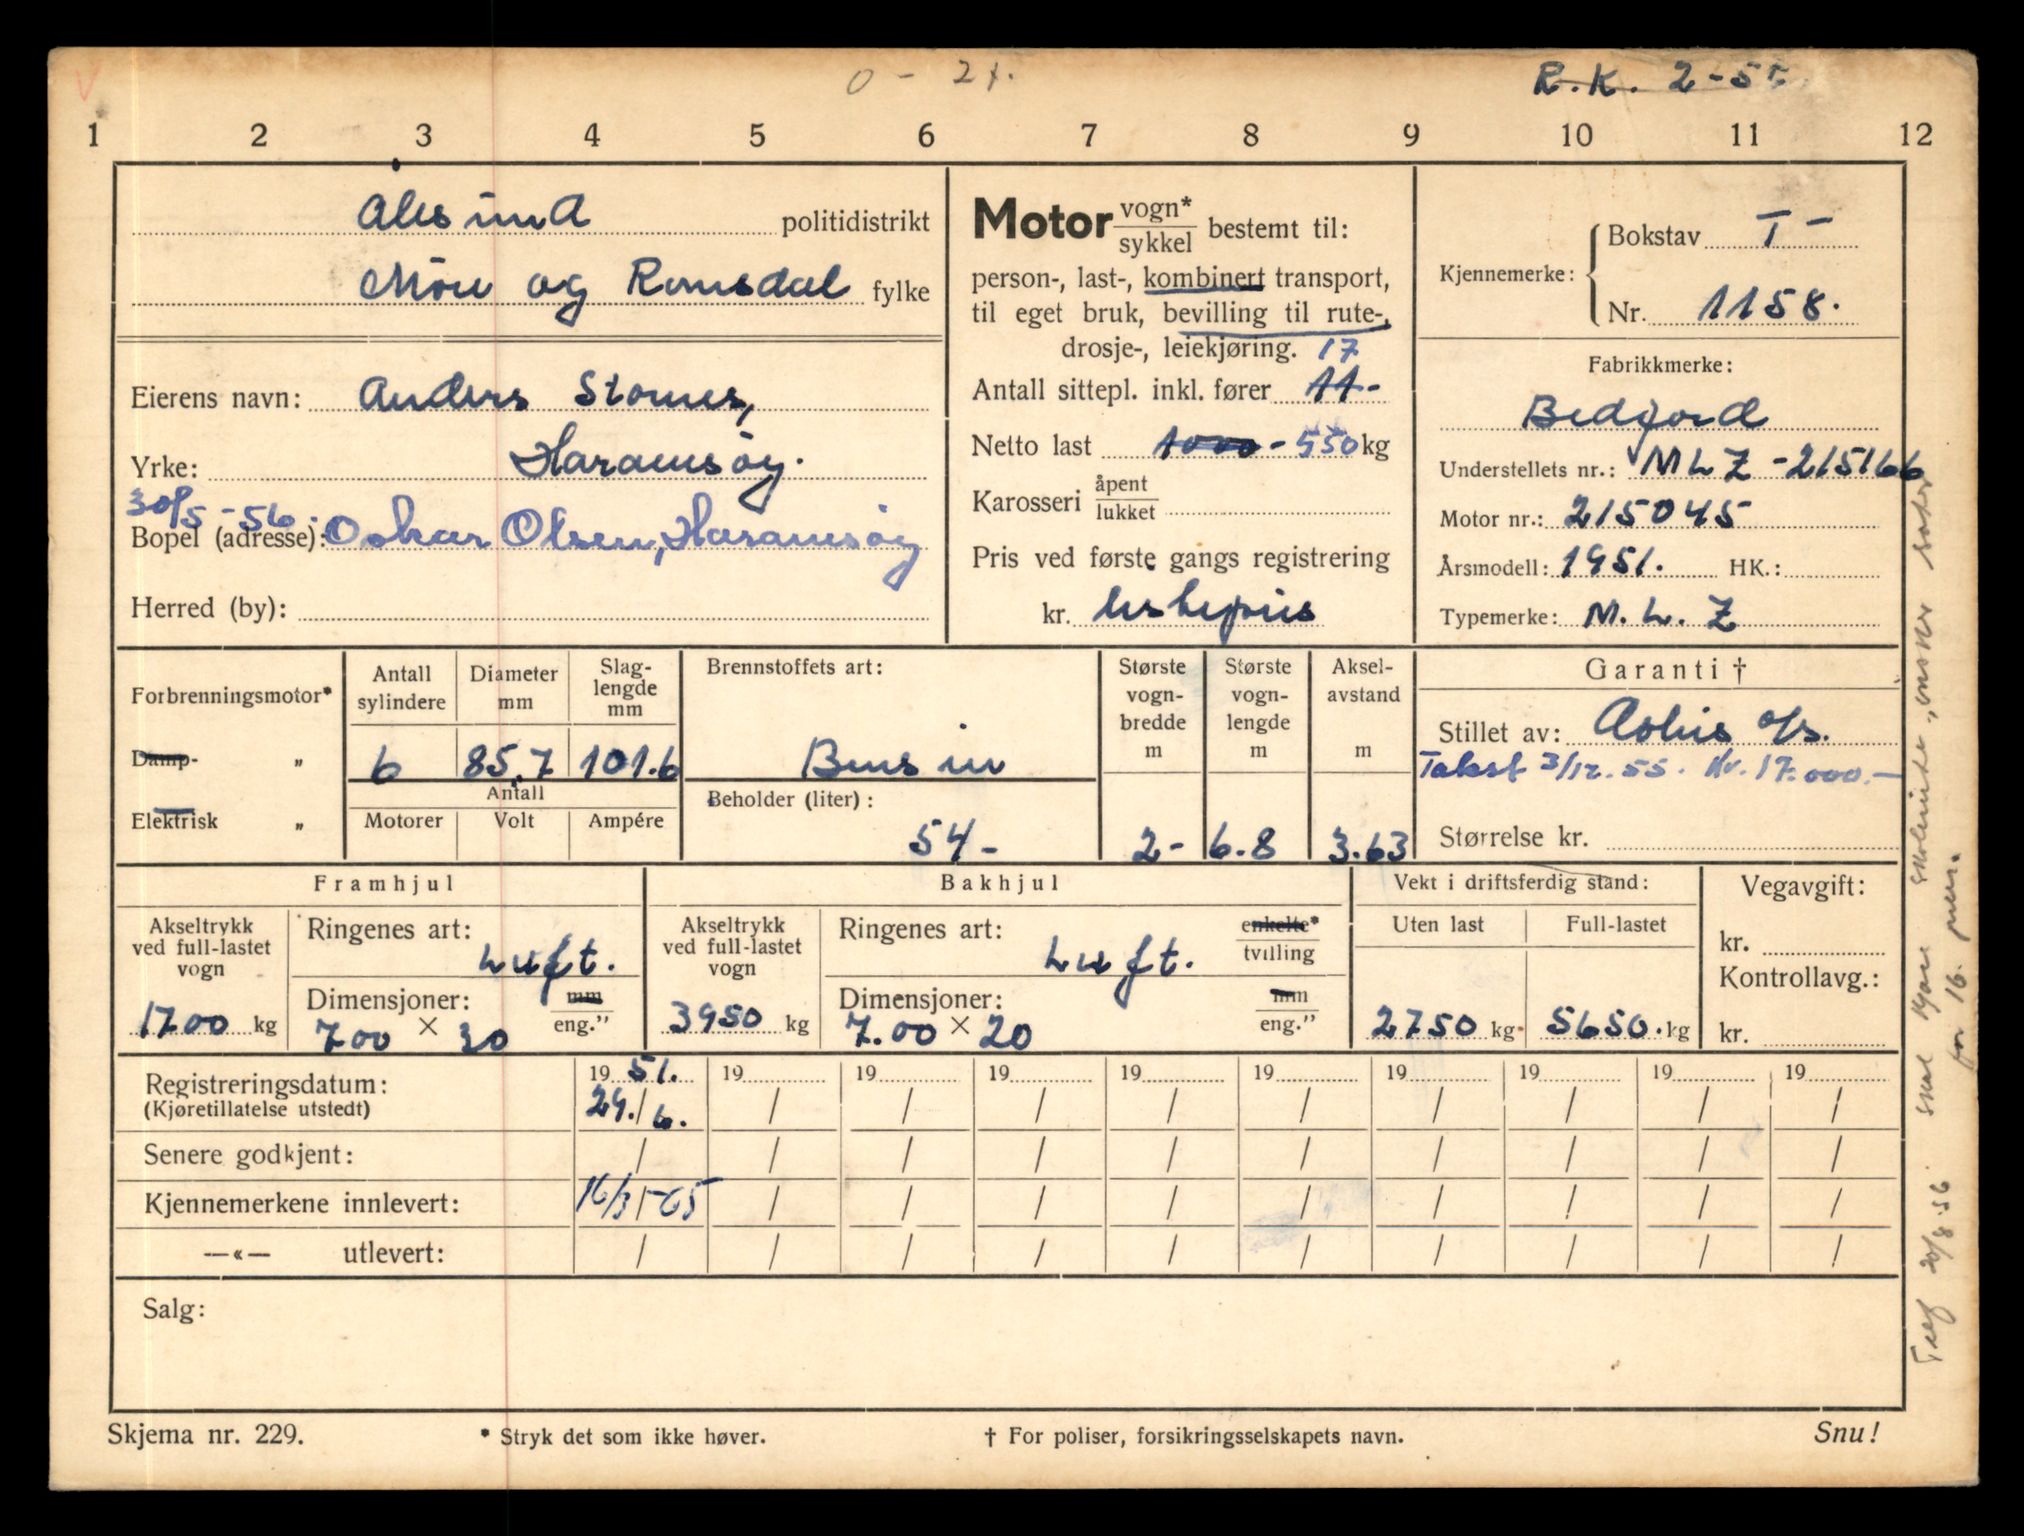 V
O - 2
R.K. 2-5
1 2 3 4 5 6 7 8 9 10 11 12
Ålesund politidistrikt
Møre og Romsdal fylke
Eierens navn: Anders Stornes,
Yrke: Haramsøy.
30/5 -56.
Bopel (adresse): Oskar Olsen, Haramsøy
Herred (by):
Motor vogn* / sykkel bestemt til:
person-, last-, kombinert transport,
til eget bruk, bevilling til rute-,
drosje-, leiekjøring. 17
Antall sittepl. inkl. fører 11-
Netto last 1000 - 550 kg
Karosseri åpent / lukket
Pris ved første gangs registrering
kr.
Kjennemerke: Bokstav T-
Nr. 1158.
Fabrikkmerke:
Bedford
Understellets nr.: MLZ-215166
Motor nr.: 215045
Årsmodell: 1951. HK.:
Typemerke: M.L.Z
Forbrenningsmotor*
Damp- „
Elektrisk „
Antall sylindere 6
Diameter mm 85.7
Slag-lengde mm 101.6
Antall
Motorer Volt Ampére
Brennstoffets art:
Bensin
Beholder (liter):
54-
Største vogn-bredde m 2-
Største vogn-lengde m 6.8
Aksel-avstand m 3.63
Garanti †
Stillet av: a/s.
Takst 3/12.55. Kr. 17.000.-
Størrelse kr.
Framhjul
Akseltrykk ved full-lastet vogn
1700 kg
Ringenes art: Luft.
Dimensjoner: mm / eng.”
7.00 × 30
Bakhjul
Akseltrykk ved full-lastet vogn
3950 kg
Ringenes art: Luft. enkelte* / tvilling
Dimensjoner: mm / eng.”
7.00 × 20
Vekt i driftsferdig stand:
Uten last Full-lastet
2750 kg 5650. kg
Vegavgift:
kr.
Kontrollavg.:
kr.
Registreringsdatum: 19 51. 19 19 19 19 19 19 19 19 19
(Kjøretillatelse utstedt) 29./6. / / / / / / / / /
Senere godkjent: / / / / / / / / / /
Kjennemerkene innlevert: 16/3-65 / / / / / / / / /
—«— utlevert: / / / / / / / / / /
Salg:
Skjema nr. 229.
* Stryk det som ikke høver.
† For poliser, forsikringsselskapets navn.
Snu!
Telf 20/8-56 skal kjøre
for 16. pers.